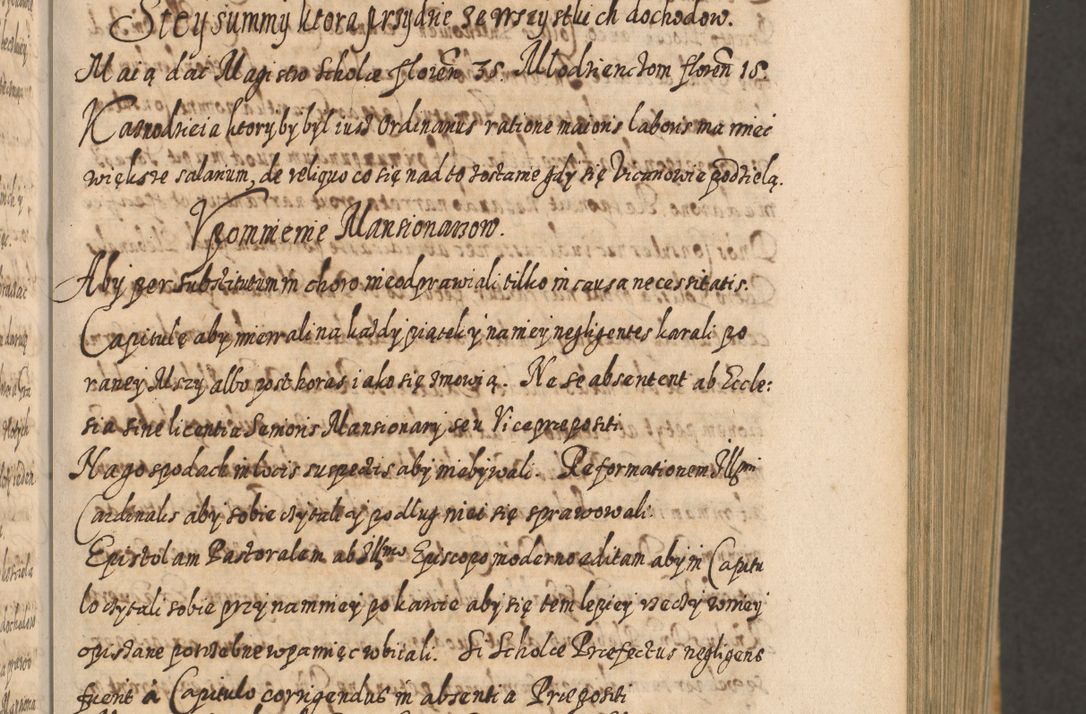 Stey summy ktora przydzie ze wszystkich dochodow.
Maią dać Magistro Scholæ floren 35. Młodzienczom floren 15.
Kaznodzieia ktoryby był iust Ordinarius ratione maioris laboris ma mieć
większe salarium, de reliquo co się nad to zostanie gdy się Vicariowie podzielą.
Vpomnienie Mansionarzow.
Aby per substitutum in choro nie odprawiali tilko in causa necessitatis.
Capitulę aby miewali na każdy piątek y na niey negligentes karali po
raney Mszy albo post horas iako się zmowią. Ne se absentent ab Eccle:
sia sine licentia Senioris Mansionarij seu Vicepræpositi
Na gospodach in locis suspectis aby niebywali. Reformationem Illsmi
Cardinalis aby sobie czytali y podług niei się sprawowali.
Epistolam Pastoralem ab Illsmo Episcopo moderno editam aby in Capitu
lo czytali sobie przynamniey po karcie aby się tem lepiey rzeczy w niey
opisane potrzebne w pamięć wbitali. Si Scholæ Præfectus negligens
fuerit à Capitulo corrigendus in absentia Præpositi